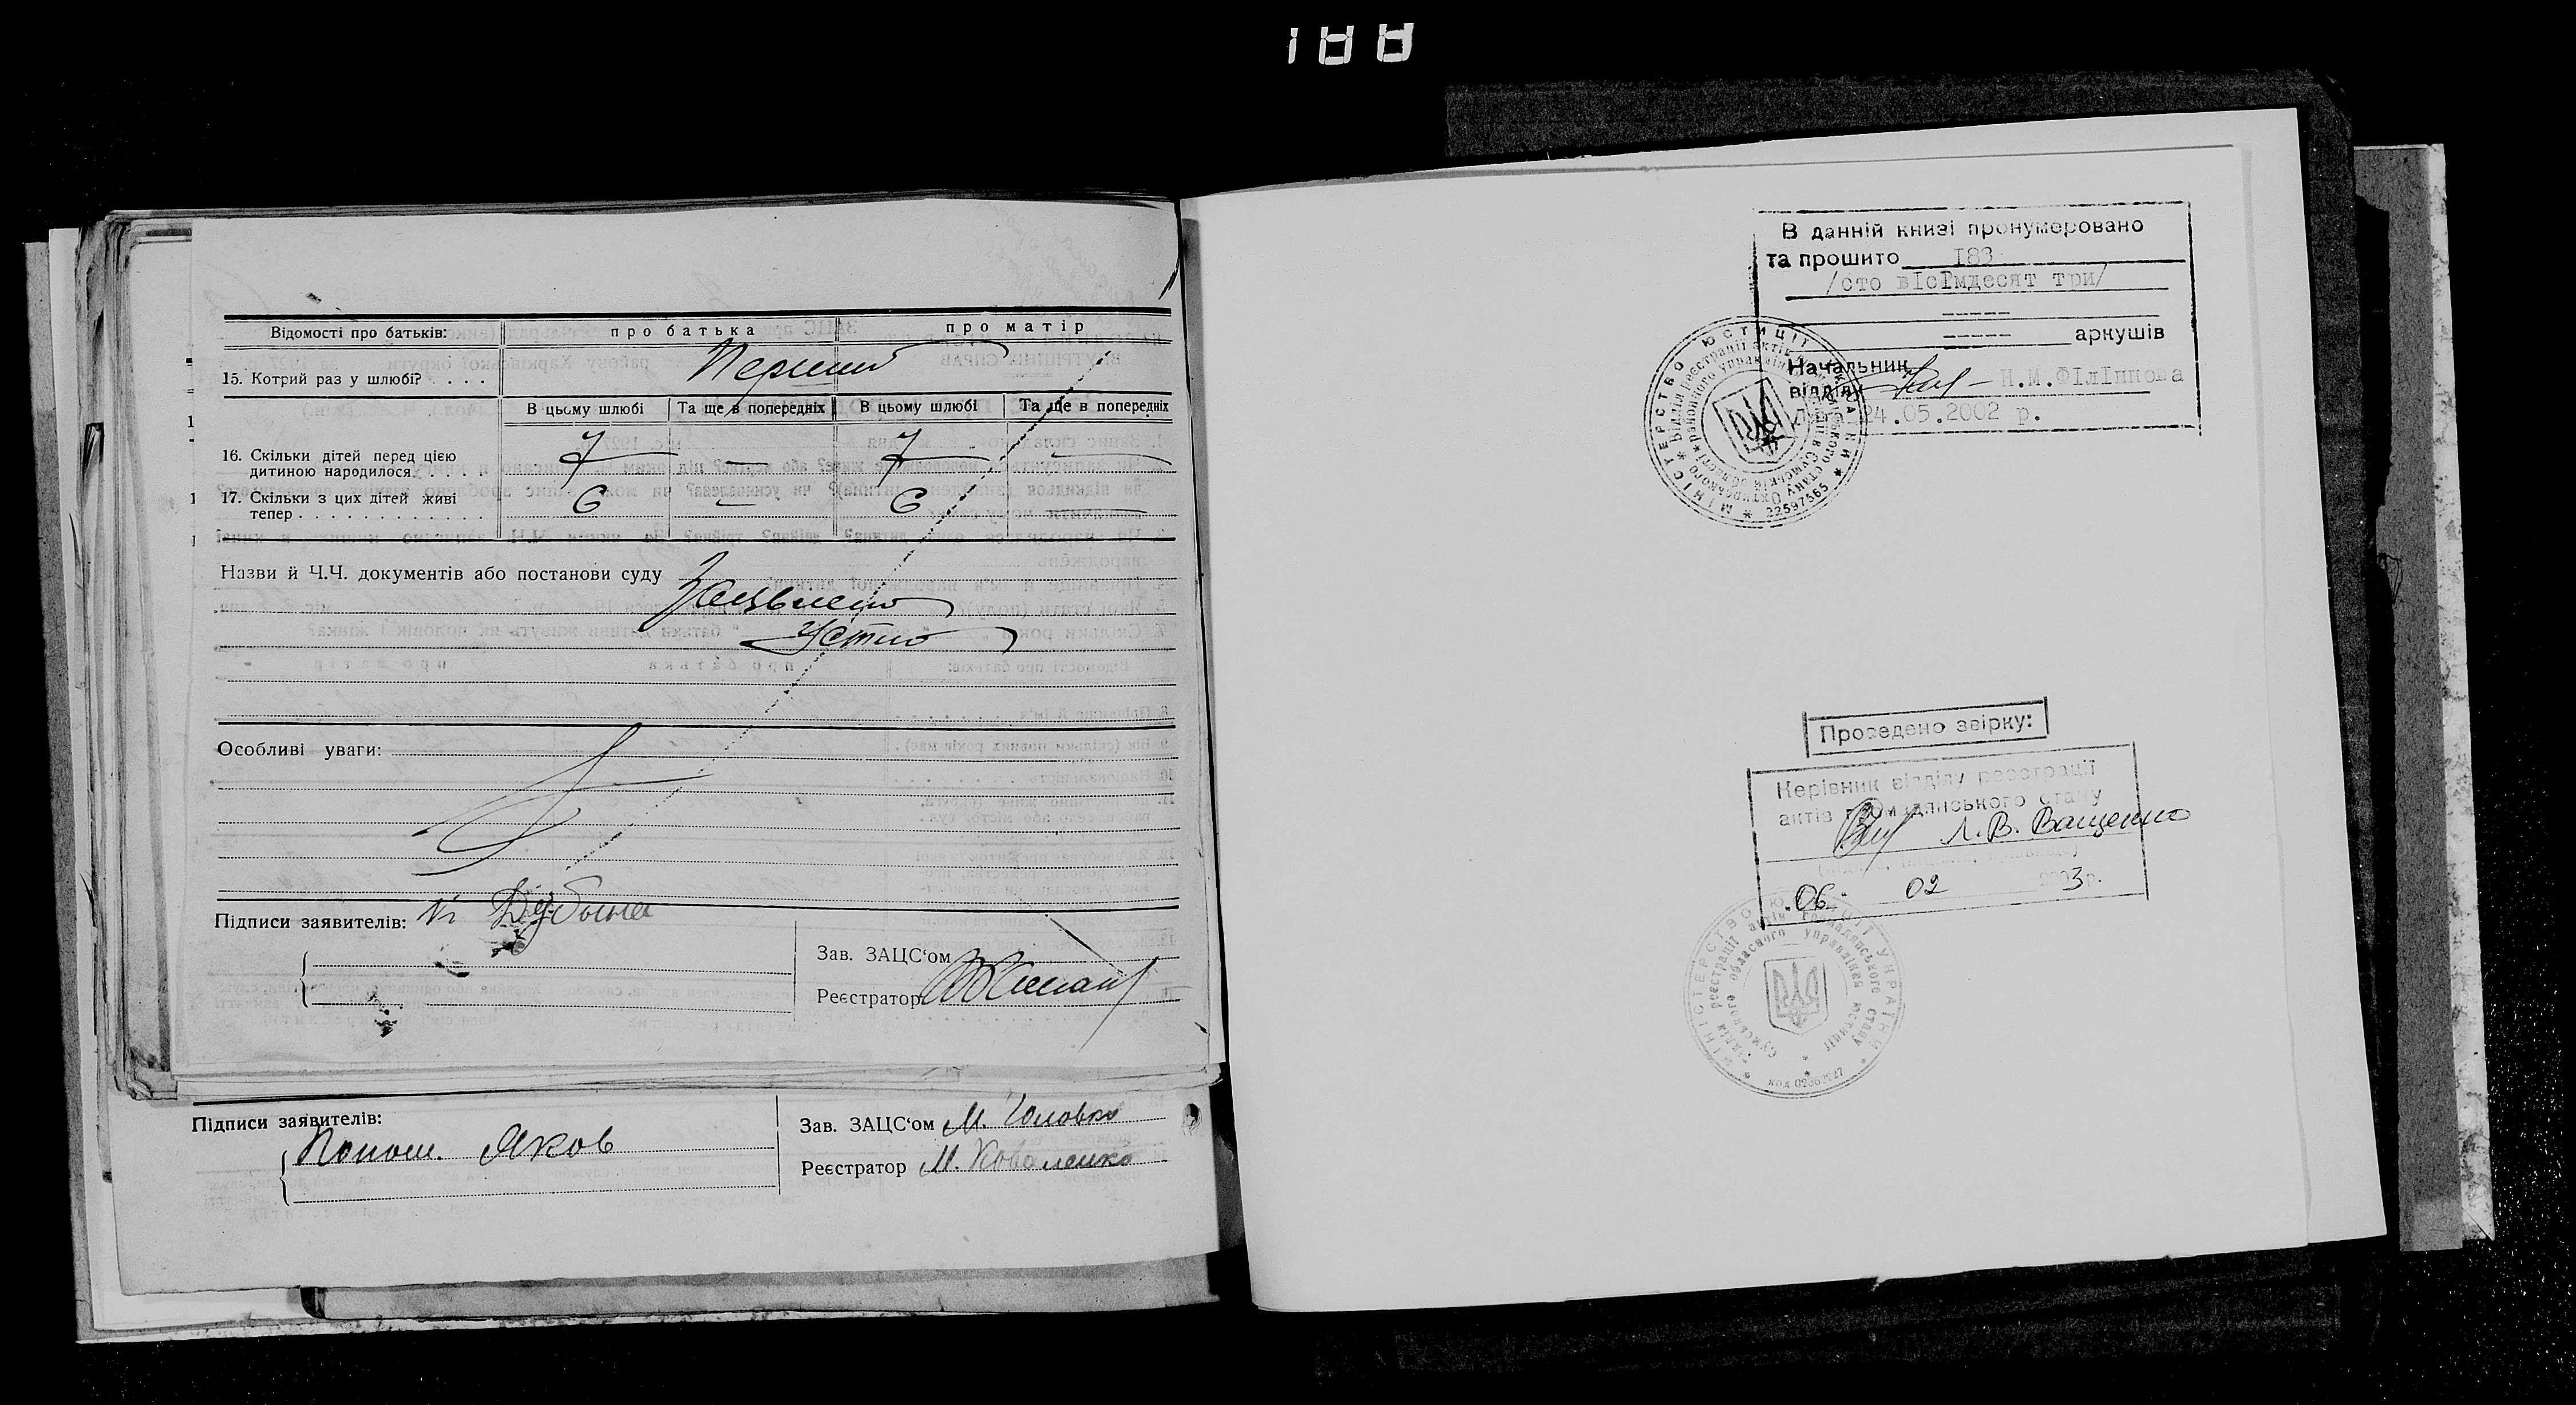 188
Відомості про батьків: про батька про матір
15. Котрий раз у шлюбі? . . . . Перший
В цьому шлюбі Та ще в попередніх В цьому шлюбі Та ще в попередніх
16. Скільки дітей перед цією
дитиною народилося . . . . 7 — 7 —
17. Скільки з цих дітей живі
тепер . . . . . . . . . . . . 6 — 6 —
Назви й Ч.Ч. документів або постанови суду
Устно
Особливі уваги:
Підписи заявителів:
Зав. ЗАЦС‘ом
Реєстратор
Підписи заявителів:
Яков
Зав. ЗАЦС‘ом М. Головко
Реєстратор М. Коваленко
В данній книзі пронумеровано
та прошито 183
/сто вісімдесят три/
аркушів
Начальник
відділу Н.М.Філіппова
24.05.2002 р.
МІНІСТЕРСТВО ЮСТИЦІЇ УКРАЇНИ
22597565
Проведено звірку:
Керівник відділу реєстрації
актів громадянського стану
Л. В. Ващенко
06 02 2003р.
МІНІСТЕРСТВО ЮСТИЦІЇ УКРАЇНИ